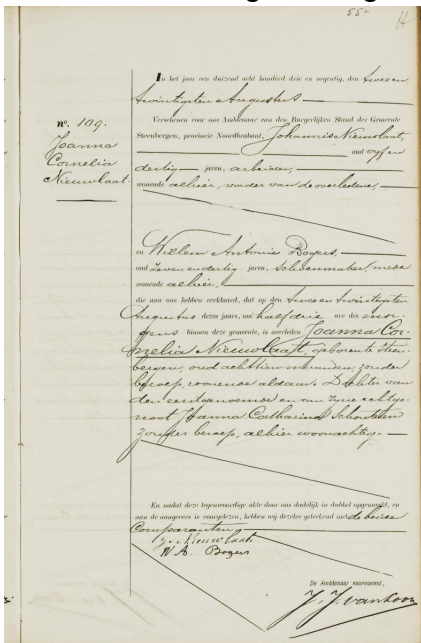 55
In het jaar een duizend acht honderd drie en negentig, den tweeen
twintigsten Augustus
nº. 109.
Joanna
Cornelia
Nieuwlaat.
Verscheen voor ons Ambtenaar van den Burgerlijken Stand der Gemeente
Steenbergen, provincie Noordbrabant, Johannis Nieuwlaat,
oud vijfen
dertig jaren, arbeider,
wonende alhier, vader van de overledene,
en Willem Antonie Bogers
oud zevenendertig jaren, schoenmaker, mede
wonende alhier,
die aan ons hebben verklaard, dat op den tweeen twintigsten
Augustus dezes jaars, om half drie ure des mor-
gens binnen deze gemeente, is overleden Joanna Cor-
nelia Nieuwlaat, geboren te Steen-
bergen, oud achttien maanden, zonder
beroep, wonende aldaar. Dochter van
den eerstgenoemde en van zijne echtge-
noot Joanna Catharina Schouteten
zonder beroep, alhier woonachtig.
En nadat deze tegenwoordige akte door ons dadelijk in dubbel opgemaakt, en
aan de aangevers is voorgelezen, hebben wij dezelve geteekend met de beide
Comparanten,
J. Nieuwlaat
W A. Bogers
De Ambtenaar voornoemd,
J. J. van Loon